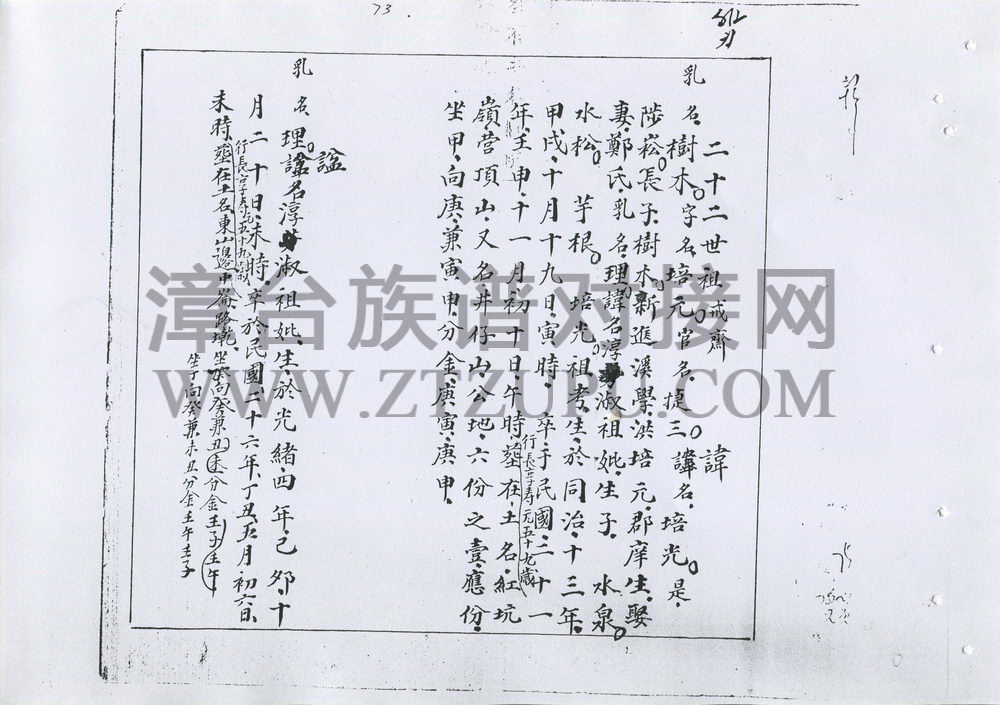 73
二十二世祖戒齋 諱
乳名樹木字名培元官名捷三諱名培光是
陟崧長子樹木新進溪學洪培元郡庠生娶
妻鄭氏乳名理諱名淳淑祖妣生子 水泉
水松 芋根 培光祖考生於同治十三年
甲戌十月十九日寅時 卒于民國二十一
行長享寿元五十九歲
年壬申十一月初十日午時塟在土名紅坑
嶺营頂山又名井仔山公地六份之壹應份
坐甲向庚兼寅申分金庚寅庚申
諡
乳名理諱名淳淑祖妣生於光緒四年己夘十
月二十日未時卒於民國二十六年丁丑五月初六日
行長享寿元五十九歲
未時塟在土名東山邊中崙路墘坐 向癸兼丑未分金壬子壬午
坐丁向癸兼未丑分金壬午壬子
漳台族谱对接网
WWW.ZTZUPU.COM